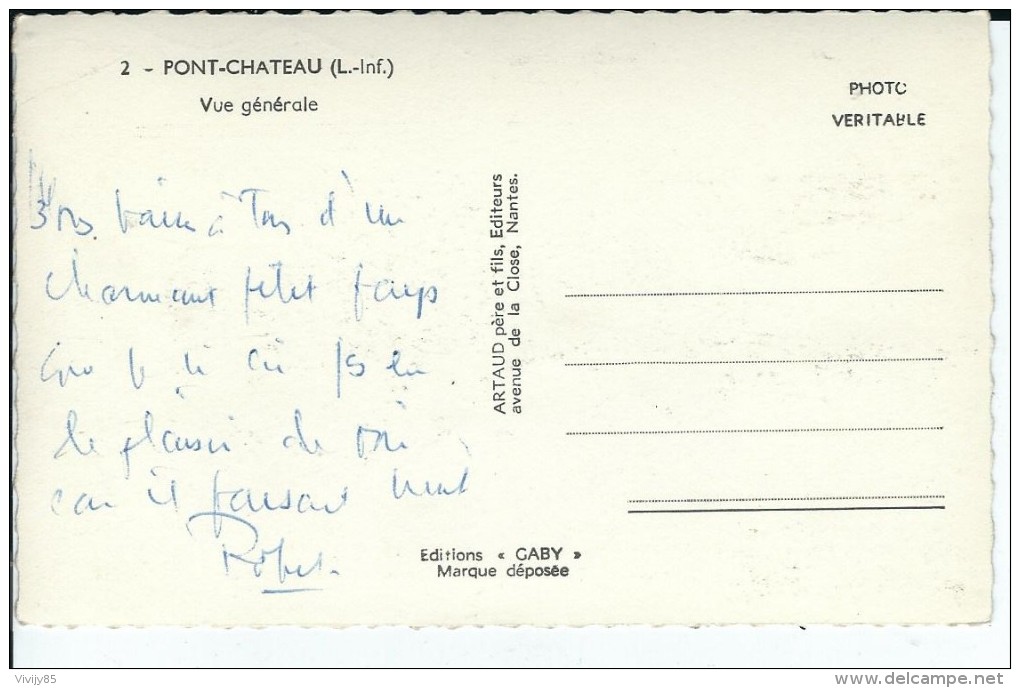 2 - PONT-CHATEAU (L.-Inf.)
Vue générale
PHOTO
VERITABLE
à Tous d'un
charmant petit pays
que
le plaisir de voir
car il faisait nuit
Robert
ARTAUD père et fils, Editeurs
avenue de la Close, Nantes.
Editions « GABY »
Marque déposée
Vivijy85
delcampe.net